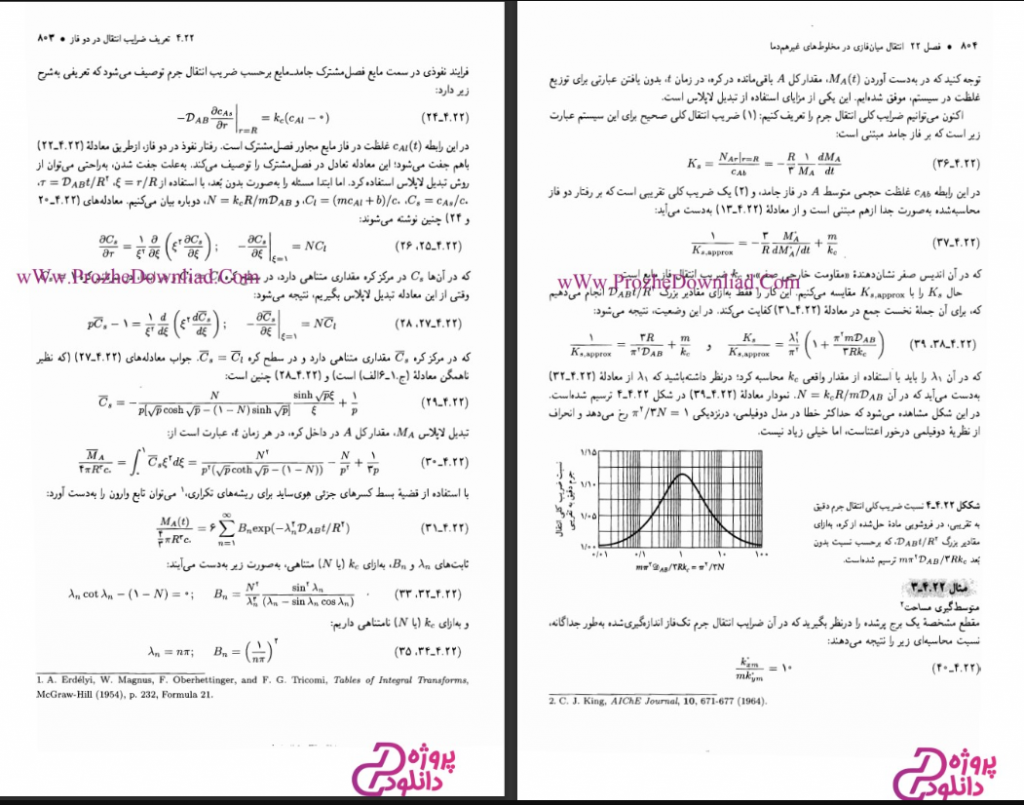 ۴.۲۲ تعریف ضرایب انتقال در دو فاز • ۸۰۳
فرایند نفوذی در سمت مایع فصل‌مشترک جامد-مایع برحسب ضریب انتقال جرم توصیف می‌شود که تعریفی به‌شرح
زیر دارد:
−𝒟_AB ∂c_As/∂r |_r=R = k_c(c_Al − ۰) (۲۴-۴.۲۲)
در این رابطه c_Al(t) غلظت در فاز مایع مجاور فصل‌مشترک است. رفتار نفوذ در دو فاز، ازطریق معادلهٔ (۲۲-۴.۲۲)
باهم جفت می‌شود؛ این معادله تعادل در فصل‌مشترک را توصیف می‌کند. به‌علت جفت شدن، به‌راحتی می‌توان از
روش تبدیل لاپلاس استفاده کرد. اما ابتدا مسئله را به‌صورت بدون بُعد، با استفاده از ξ = r/R، τ = 𝒟_AB t/R²،
C_s = c_As/c₀، C_l = (mc_Al + b)/c₀، و N = k_c R/m𝒟_AB، دوباره بیان می‌کنیم. معادله‌های (۲۰-۴.۲۲
و ۲۴) چنین نوشته می‌شوند:
∂C_s/∂τ = (۱/ξ²) ∂/∂ξ (ξ² ∂C_s/∂ξ) ; −∂C_s/∂ξ |_ξ=۱ = NC_l (۲۶ ،۲۵-۴.۲۲)
که در آن‌ها C_s در مرکز کره مقداری متناهی دارد، در
wWw.ProzheDownliad.Com
وقتی از این معادله تبدیل لاپلاس بگیریم، نتیجه می‌شود:
pC̅_s − ۱ = (۱/ξ²) d/dξ (ξ² dC̅_s/dξ) ; −∂C̅_s/∂ξ |_ξ=۱ = NC̅_l (۲۸ ،۲۷-۴.۲۲)
که در مرکز کره C̅_s مقداری متناهی دارد و در سطح کره C̅_s = C̅_l. جواب معادله‌های (۲۷-۴.۲۲) (که نظیر
ناهمگن معادلهٔ (ج.۱-۶الف) است) و (۲۸-۴.۲۲) چنین است:
C̅_s = −N/(p[√p cosh √p − (۱ − N) sinh √p]) · sinh √p ξ/ξ + ۱/p (۲۹-۴.۲۲)
تبدیل لاپلاس M_A، مقدار کل A در داخل کره، در هر زمان t، عبارت است از:
M̅_A/۴πR³c₀ = ∫₀¹ C̅_s ξ² dξ = N²/(p²(√p coth √p − (۱ − N))) − N/p² + ۱/۳p (۳۰-۴.۲۲)
با استفاده از قضیهٔ بسط کسرهای جزئی هوی‌ساید برای ریشه‌های تکراری،¹ می‌توان تابع وارون را به‌دست آورد:
M_A(t)/(۴/۳ πR³c₀) = ۶ Σ_n=۱^∞ B_n exp(−λ_n² 𝒟_AB t/R²) (۳۱-۴.۲۲)
ثابت‌های λ_n و B_n، به‌ازای k_c (یا N) متناهی، به‌صورت زیر به‌دست می‌آیند:
λ_n cot λ_n − (۱ − N) = ۰; B_n = (N²/λ_n⁴) sin² λ_n/(λ_n − sin λ_n cos λ_n) (۳۳ ،۳۲-۴.۲۲)
و به‌ازای k_c (یا N) نامتناهی داریم:
λ_n = nπ; B_n = (۱/nπ)² (۳۵ ،۳۴-۴.۲۲)
1. A. Erdélyi, W. Magnus, F. Oberhettinger, and F. G. Tricomi, Tables of Integral Transforms,
McGraw-Hill (1954), p. 232, Formula 21.
پروژه
دانلود
۸۰۴ • فصل ۲۲ انتقال میان‌فازی در مخلوط‌های غیرهم‌دما
توجه کنید که در به‌دست آوردن M_A(t)، مقدار کل A باقی‌مانده در کره، در زمان t، بدون یافتن عبارتی برای توزیع
غلظت در سیستم، موفق شده‌ایم. این یکی از مزایای استفاده از تبدیل لاپلاس است.
اکنون می‌توانیم ضرایب کلی انتقال جرم را تعریف کنیم: (۱) ضریب انتقال کلی صحیح برای این سیستم عبارت
زیر است که بر فاز جامد مبتنی است:
K_s = N_Ar|_r=R/c_Ab = −(R/۳)(۱/M_A) dM_A/dt (۳۶-۴.۲۲)
در این رابطه c_Ab غلظت حجمی متوسط A در فاز جامد، و (۲) یک ضریب کلی تقریبی است که بر رفتار دو فاز
محاسبه‌شده به‌صورت جدا ازهم مبتنی است و از معادلهٔ (۱۳-۴.۲۲) به‌دست می‌آید:
۱/K_s,approx = −(۳/R) M_A⁰/(dM_A⁰/dt) + m/k_c (۳۷-۴.۲۲)
که در آن اندیس صفر نشان‌دهندهٔ «مقاومت خارجی صفر» و k_c ضریب انتقال فاز مایع است.
wWw.ProzheDownliad.Com
حال K_s را با K_s,approx مقایسه می‌کنیم. این کار را فقط به‌ازای مقادیر بزرگ 𝒟_AB t/R² انجام می‌دهیم
که، برای آن جملهٔ نخست جمع در معادلهٔ (۳۱-۴.۲۲) کفایت می‌کند. در این وضعیت، نتیجه می‌شود:
۱/K_s,approx = ۳R/π²𝒟_AB + m/k_c و K_s/K_s,approx = (λ₁²/π²)(۱ + π²m𝒟_AB/۳Rk_c) (۳۹ ،۳۸-۴.۲۲)
که در آن λ₁ را باید با استفاده از مقدار واقعی k_c محاسبه کرد؛ درنظر داشته‌باشید که λ₁ از معادلهٔ (۳۲-۴.۲۲)
به‌دست می‌آید که در آن N = k_c R/m𝒟_AB. نمودار معادلهٔ (۳۹-۴.۲۲) در شکل ۴.۲۲-۴ ترسیم شده‌است.
در این شکل مشاهده می‌شود که حداکثر خطا در مدل دوفیلمی، درنزدیکی π²/۳N = ۱ رخ می‌دهد و انحراف
از نظریهٔ دوفیلمی درخور اعتناست، اما خیلی زیاد نیست.
نسبت ضریب کلی انتقال
جرم دقیق به تقریبی
۱/۱۵
۱/۱۰
۱/۰۵
۱/۰۰
۰/۰۱ ۰/۱ ۱ ۱۰ ۱۰۰
mπ²𝒟_AB/۳Rk_c = π²/۳N
شکل ۴.۲۲-۴ نسبت ضریب کلی انتقال جرم دقیق
به تقریبی، در فروشویی مادهٔ حل‌شده از کره، به‌ازای
مقادیر بزرگ 𝒟_AB t/R²، که برحسب نسبت بدون
بُعد mπ²𝒟_AB/۳Rk_c ترسیم شده‌است.
مثال ۴.۲۲-۳
متوسط‌گیری مساحت²
مقطع مشخصهٔ یک برج پرشده را درنظر بگیرید که در آن ضرایب انتقال جرم تک‌فاز اندازه‌گیری‌شده به‌طور جداگانه،
نسبت محاسبه‌ای زیر را نتیجه می‌دهند:
k_xm/mk_ym = ۱۰ (۴۰-۴.۲۲)
2. C. J. King, AIChE Journal, 10, 671-677 (1964).
پروژه
دانلود